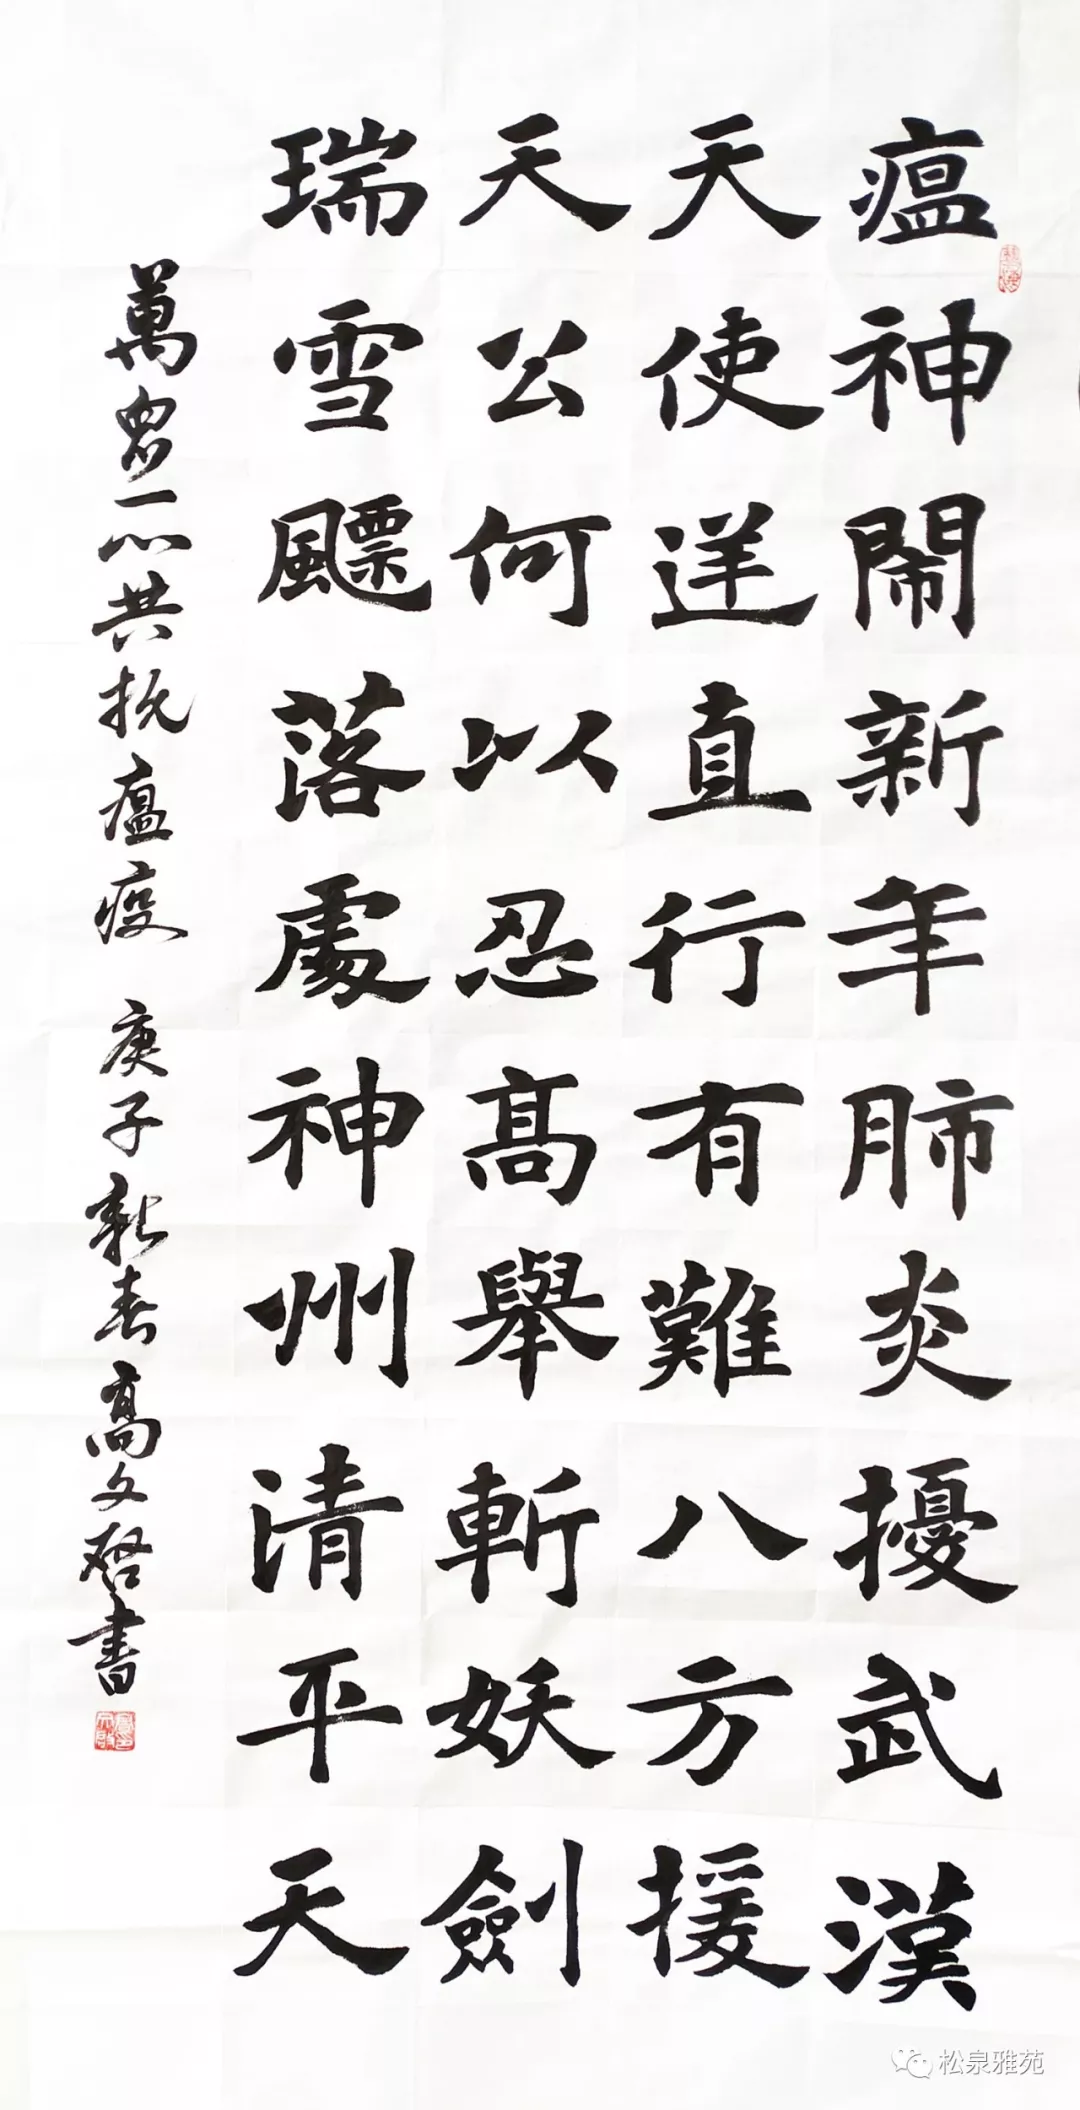 瘟神鬧新年肺炎擾武漢
天使逆直行有難八方援
天公何以忍高舉斬妖劍
瑞雪飄落處神州清平天
萬眾一心共抗瘟疫 庚子新春高文啓書
松泉雅苑